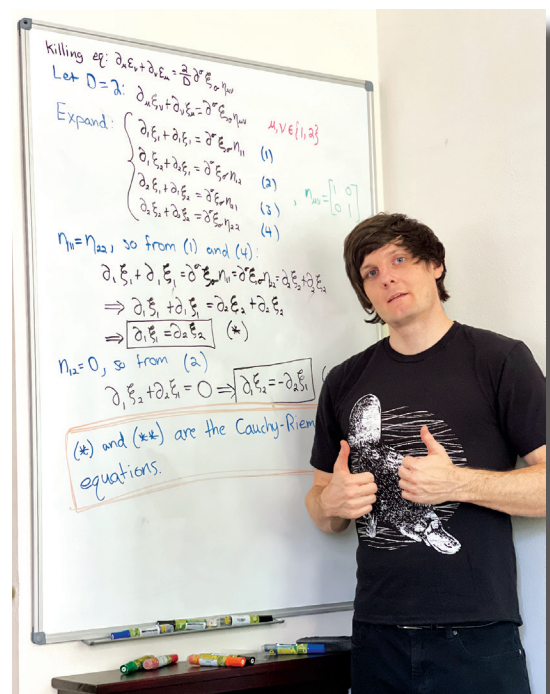 Killing eq: ∂_μ ξ_ν + ∂_ν ξ_μ = 2/D ∂^σ ξ_σ η_μν
Let D=2: ∂_μ ξ_ν + ∂_ν ξ_μ = ∂^σ ξ_σ η_μν
μ,ν∈{1,2}
Expand: { ∂₁ξ₁+∂₁ξ₁ = ∂^σ ξ_σ η₁₁ (1)
∂₁ξ₂+∂₂ξ₁ = ∂^σ ξ_σ η₁₂ (2)
∂₂ξ₁+∂₁ξ₂ = ∂^σ ξ_σ η₂₁ (3)
∂₂ξ₂+∂₂ξ₂ = ∂^σ ξ_σ η₂₂ (4)
, η_μν = [1 0
0 1]
η₁₁=η₂₂, so from (1) and (4):
∂₁ξ₁+∂₁ξ₁ = ∂^σ ξ_σ η₁₁ = ∂^σ ξ_σ η₂₂ = ∂₂ξ₂+∂₂ξ₂
⇒ ∂₁ξ₁+∂₁ξ₁ = ∂₂ξ₂+∂₂ξ₂
⇒ ∂₁ξ₁=∂₂ξ₂ (*)
η₁₂=0, so from (2)
∂₁ξ₂+∂₂ξ₁ = 0 ⇒ ∂₁ξ₂=-∂₂ξ₁ (
(*) and (**) are the Cauchy-Riem
equations.